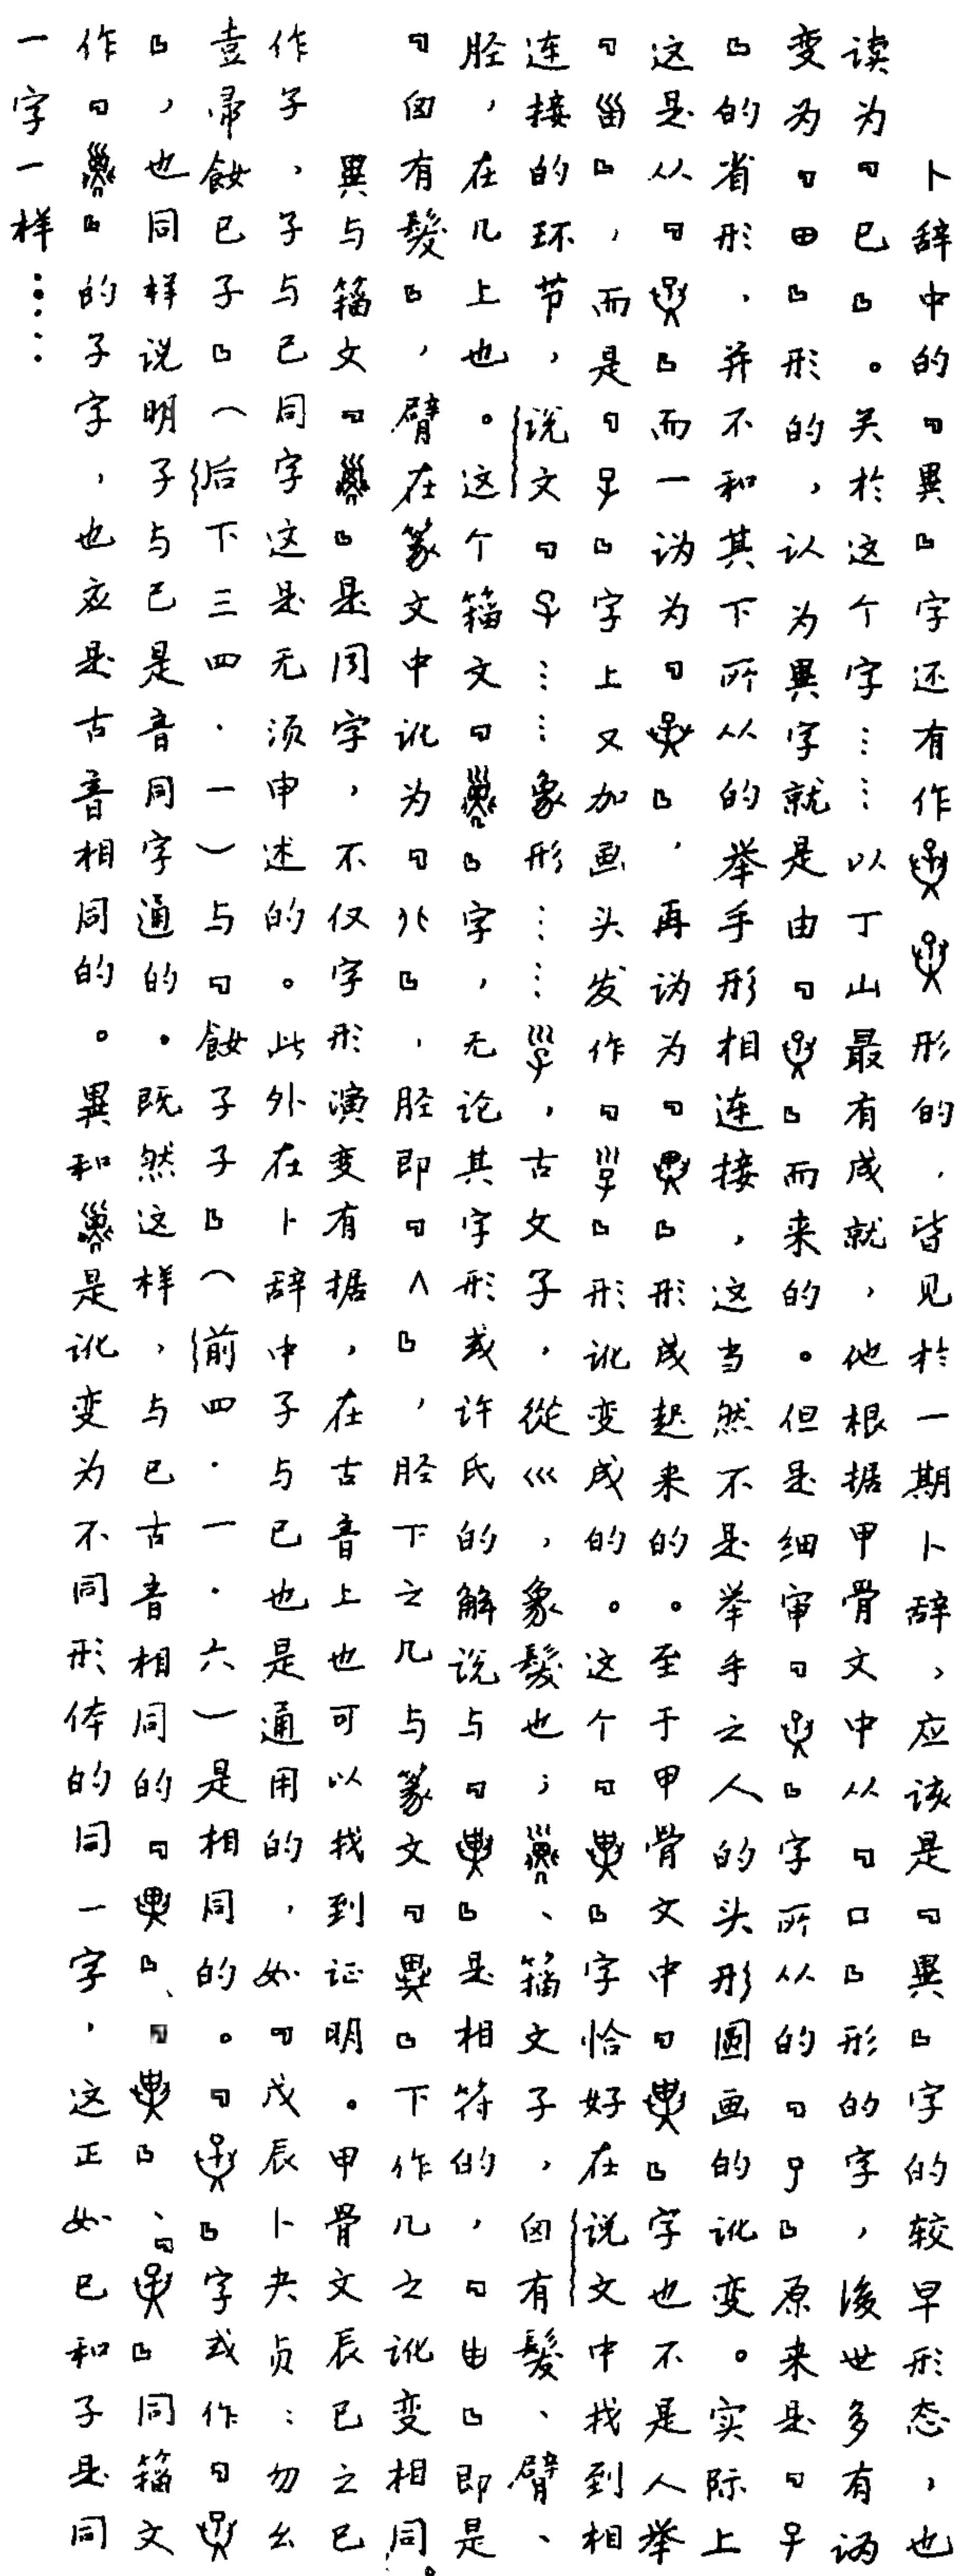 卜辞中的「異」字还有作形的，皆见於一期卜辞，应该是「異」字的较早形态，也
读为「巳」。关於这个字……以丁山最有成就，他根据甲骨文中从「口」形的字，後世多有讹
变为「田」形的，认为異字就是由「」而来的。但是细审「」字所从的「」原来是「子
」的省形，并不和其下所从的举手形相连接，这当然不是举手之人的头形圆画的讹变。实际上
这是从「」而一讹为「」，再讹为「」形成起来的。至于甲骨文中「」字也不是人举
「甾」，而是「子」字上又加画头发作「」形讹变成的。这个「」字恰好在说文中找到相
连接的环节，说文「子……象形……，古文子，從巛，象髮也；、籀文子，囟有髮、臂、
胫，在几上也。这个籀文「」字，无论其字形或许氏的解说与「」是相符的，「甶」即是
「囟有髮」，臂在篆文中讹为「」，胫即「∧」，胫下之几与篆文「異」下作几之讹变相同。
異与籀文「」是同字，不仅字形演变有据，在古音上也可以找到证明。甲骨文辰巳之巳
作子，子与已同字这是无须申述的。此外在卜辞中子与已也是通用的，如「戊辰卜夬贞：勿幺
壴帚已子」（后下三四·一）与「子子」（前四·一·六）是相同的。「」字或作「
」，也同样说明子与已是音同字通的。既然这样，与已古音相同的「」、「」、「」同籀文
作「」的子字，也应是古音相同的。異和是讹变为不同形体的同一字，这正如巳和子是同
一字一样……